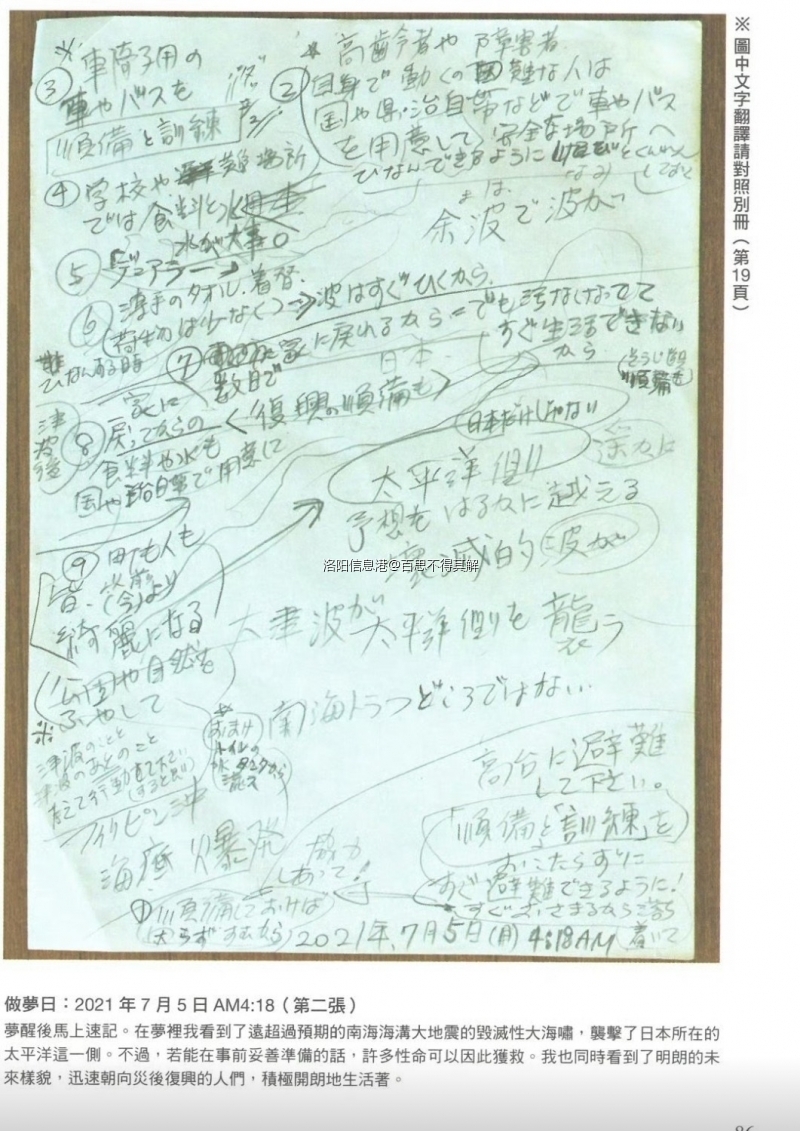 ※圖中文字翻譯請對照別冊(第19頁)
※
③ 車椅子用の
車やバスを
準備と訓練
※ 高齢者や障害者
② 自身で動くの困難な人は
国や県、治自帯などで車やバス
を用意して、安全な場所へ
ひなんできるように
④ 学校や避難場所
では食料と
水が大事。
余波で波が
⑤ デュアラー
⑥ 薄手のタオル、着替
(荷物は少なく)→波はすぐひくから、
ひなんする時
⑦ 家に戻れるから=でも汚なくなってて
数日で
すぐ生活できない
から
日本
そうじ
準備も
津波後
⑧ 家に
戻ってからの
食料や水も
国や自治帯で用意して
<復興の準備も>
日本だけじゃない
太平洋側
予想をはるかに越える
壊滅的 波が
洛阳信息港@百思不得其解
⑨ 町も人も
皆、(今)より
綺麗になる
大津波が太平洋側を襲う
公園や自然を
ふやして
※
南海トラフどころではない…
おまけ
トイレの
水タンクから
津波のことと
津波のあとのこと
高台に避難
して下さい。
フィリピン沖
海底 爆発
協力
しあって!
「準備と「訓練」を
おこたらずに
すぐ避難できるように!
すぐおさまるから落ち
着いて
① 準備しておけば
2021年、7月5日(月) 4:18AM
做夢日:2021 年 7 月 5 日 AM4:18(第二張)
夢醒後馬上速記。在夢裡我看到了遠超過預期的南海海溝大地震的毀滅性大海嘯,襲擊了日本所在的
太平洋這一側。不過,若能在事前妥善準備的話,許多性命可以因此獲救。我也同時看到了明朗的未
來樣貌,迅速朝向災後復興的人們,積極開朗地生活著。
86